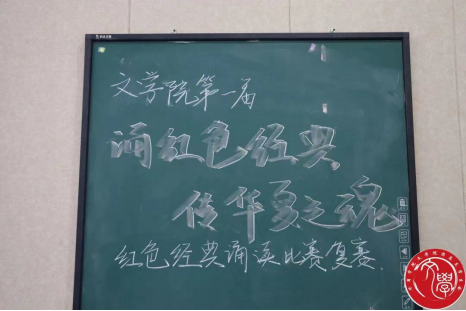 文学院第一届
诵红色经典
传华夏之魂
红色经典诵读比赛复赛.
文學